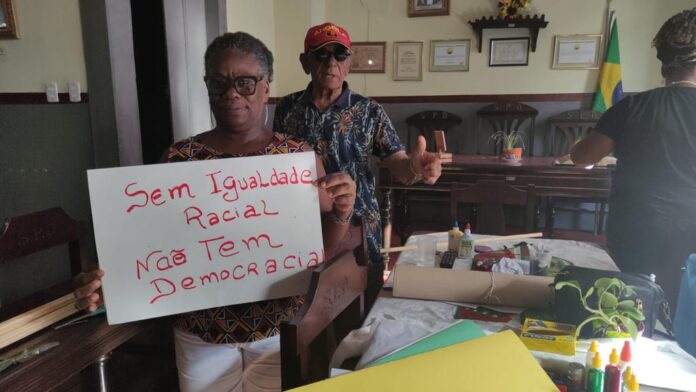 Sem Igualdade
Racial
Não Tem
Democracia!
ANGOLA